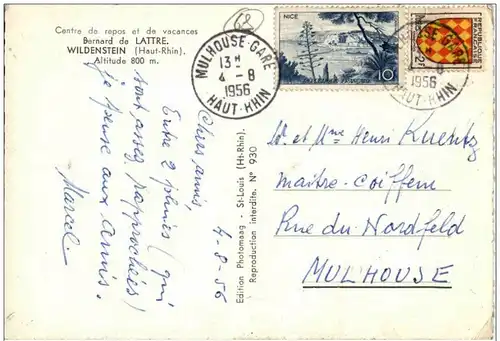 Centre de repos et de vacances
Bernard de LATTRE.
WILDENSTEIN (Haut-Rhin).
Altitude 800 m.
68
MULHOUSE-GARE
13H
4-8
1956
HAUT-RHIN
NICE
10F
REPUBLIQUE FRANÇAISE
2F
GARE
8
1956
HAUT-RHIN
4-8-56
Chers amis,
Entre 2 pluies (qui
sont assez rapprochées)
je pense aux amis.
Marcel
Edition Photomaag - St-Louis (Ht-Rhin).
Reproduction interdite. N° 930
Mr et Mme Henri Kuentz
maître-coiffeur
Rue du Nordfeld
MULHOUSE